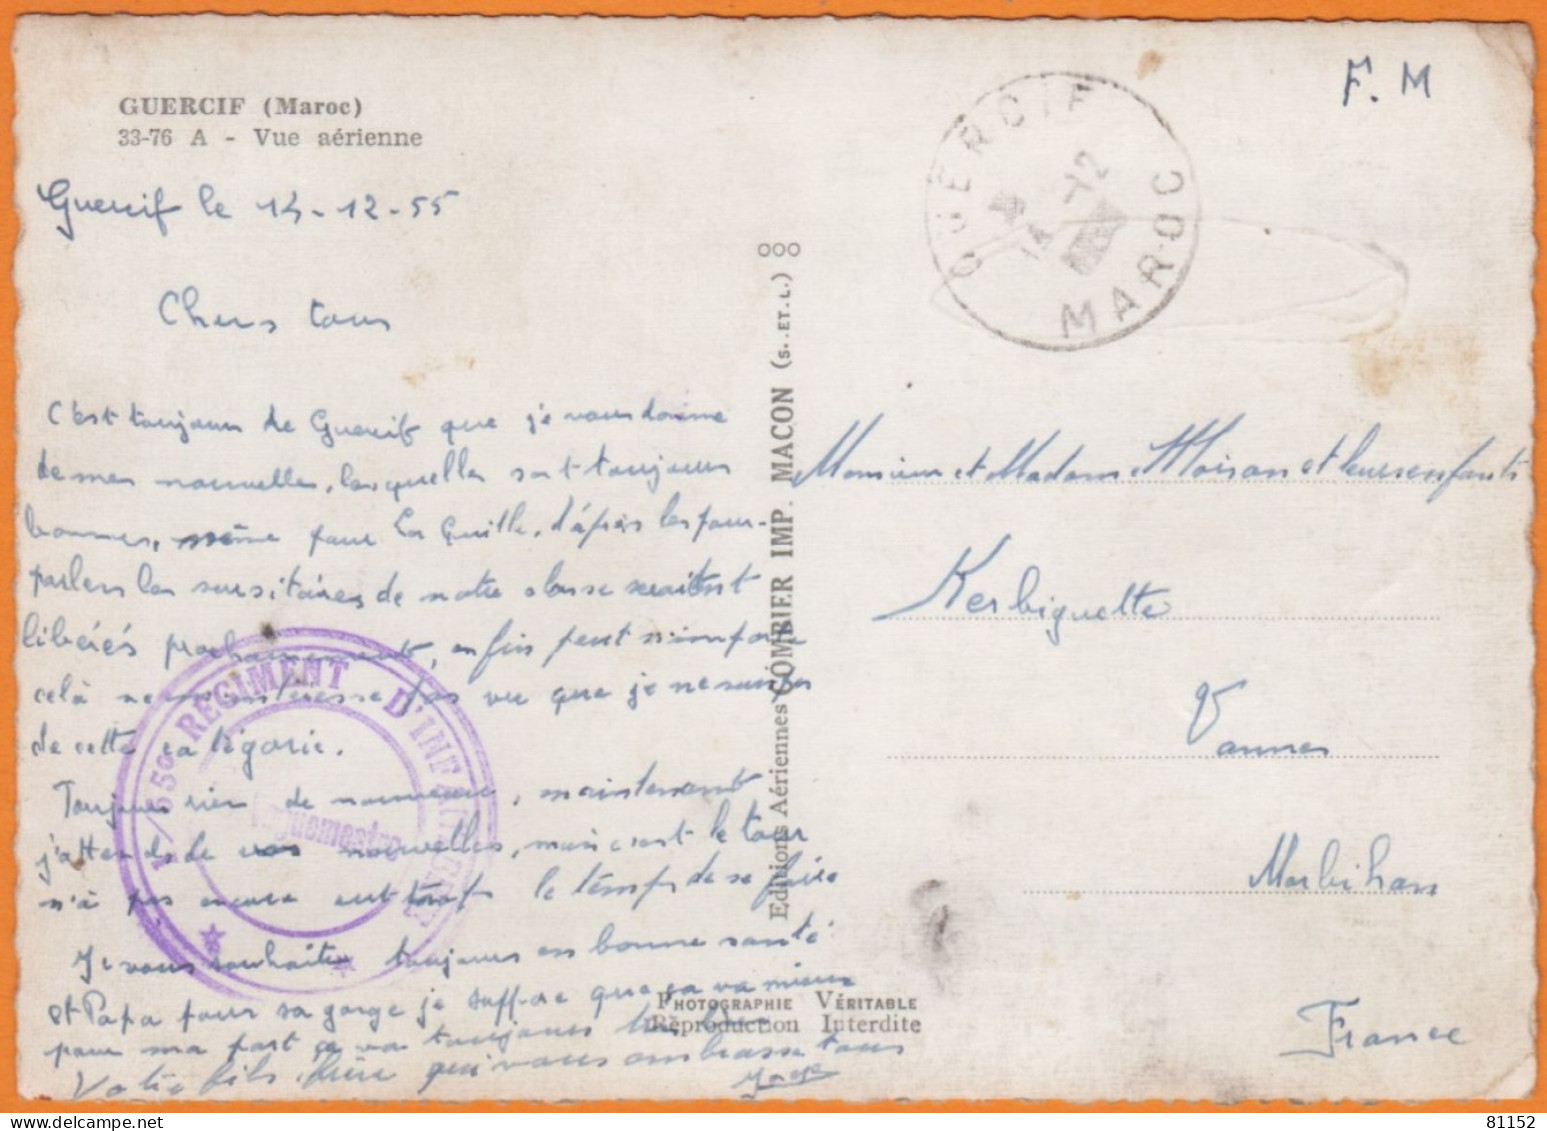 GUERCIF (Maroc)
33-76 A - Vue aérienne
Guercif le 14-12-55
Chers tous
C'est toujours de Guercif que je vous donne
de mes nouvelles, lesquelles sont toujours
bonnes, même pour La Quille. d'après les pour-
parlers les sursitaires de notre classe seraient
libérés prochainement, enfin peut n'importe
celà ne m'intéresse pas vu que je ne suis pas
de cette catégorie.
Toujours rien de nouveau, maintenant
j'attends de vos nouvelles, mais c'est le tour
n'a pas encore eut le temps de se faire
Je vous souhaite toujours en bonne santé
et Papa pour sa gorge je suppose que ça va mieux
pour ma part ça va toujours très bien
Votre fils, frère qui vous embrasse tous
1/65e REGIMENT D'INFANTERIE
Vaguemestre
OOO
Editions Aériennes COMBIER IMP. MACON (S.-ET-L.)
PHOTOGRAPHIE VÉRITABLE
Reproduction Interdite
GUERCIF
14-12
MAROC
F.M
Monsieur et Madame Moisan et leurs enfants
Kerbiguette
Vannes
Morbihan
France
81152